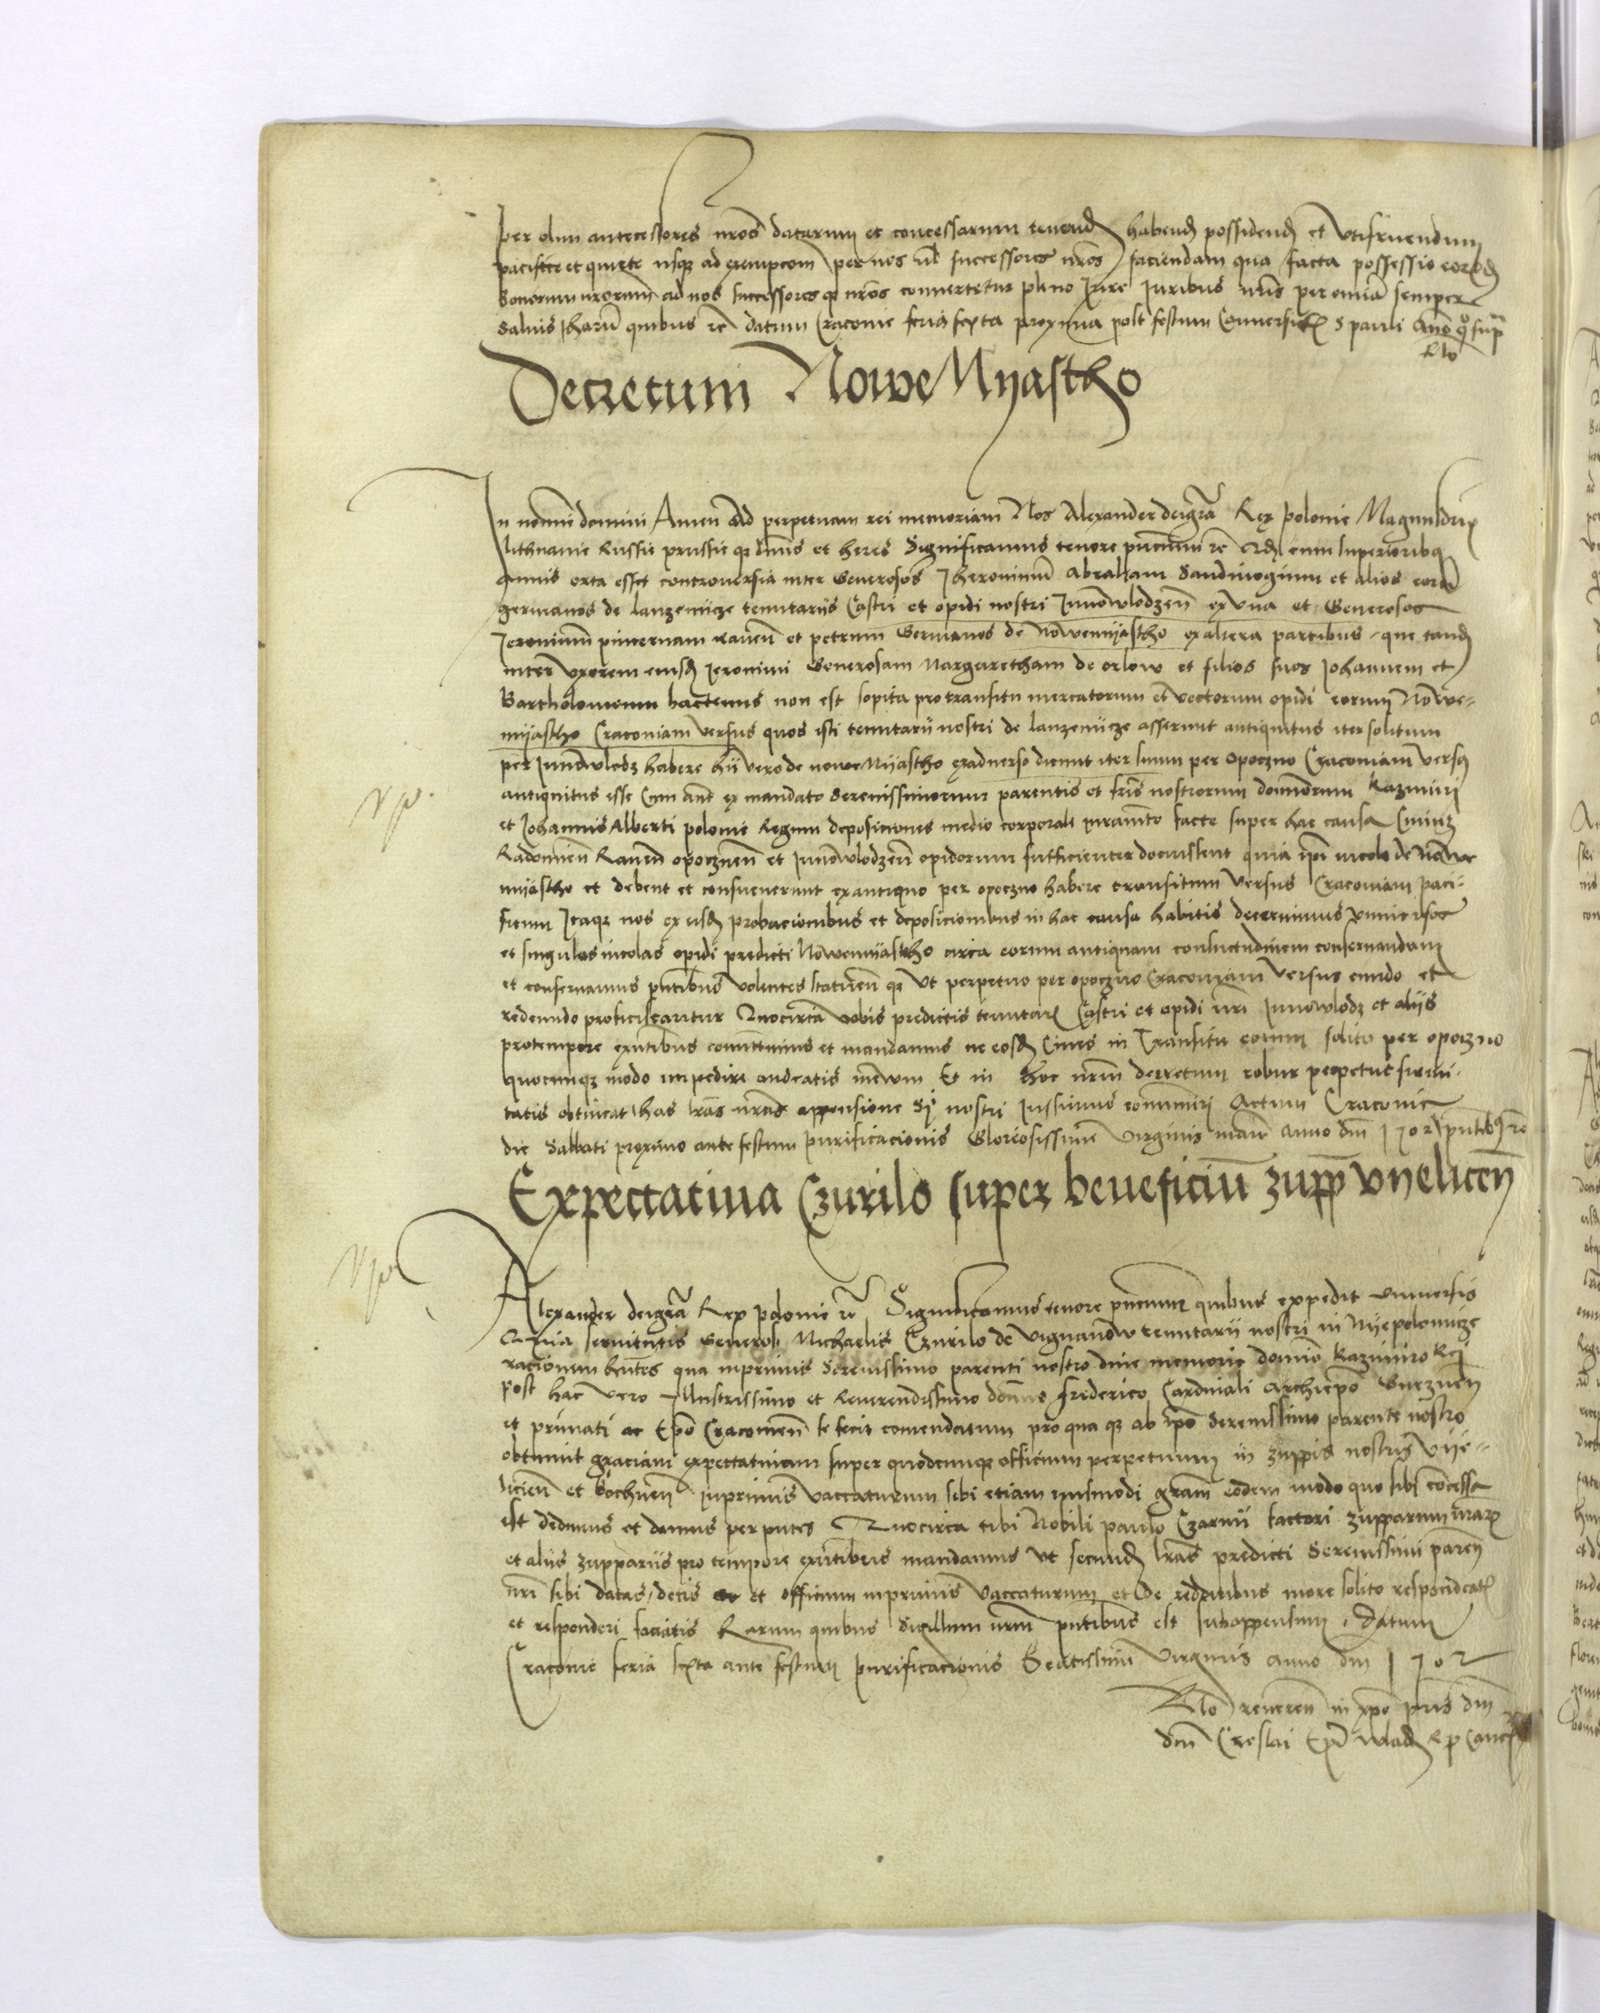 per olim antecessores nros datarum et concessarum tenend habend possidend et utifruendum
pacifice et quiete usq ad exempcom per nos vl successores nros faciendam qua facta possessio eord
bonorum nrorum ad nos successores q nros convertetur pleno Jure Juribus nris per omnia semper
salvis harum quibus rc datum Cracovie feria sexta proxima post festum Conversio S pauli Anno quo supra
Rlo
Decretum Nowe Myastho
In nomine domini Amen Ad perpetuam rei memoriam Nos Alexander dei gra Rex polonie Magnus dux
lithuanie Russie prussie q dnus et heres Significamus tenore pncium rc Qd cum superioribus
annis orta esset controversia inter Generosos Jheronimum Abraham Sandivogium et alios eorum
germanos de lanzenicze tenutarys Castri et opidi nostri Jnnowlodzen ex una et Generosos
Jeronimum pincernam raven et petrum Germanos de Nowemyastho ex altera partibus que tand
inter uxorem eiusd Jeronimi Generosam Margaretham de orlow et filios suos Johannem et
Bartholomeum hactenus non est sopita pro transitu mercatorum et vectorum opidi eorum Nowe-
myastho Cracoviam versus quos isti tenutarii nostri de lanzenicze asserunt antiquitus iter solitum
per Jnnowlodz habere hii vero de nowe Myastho ex adverso dicunt iter suum per opoczno Cracoviam versus
antiquitus esse Cum aut ex mandato Serenissimorum parentis et fris nostrorum dominorum Kazmiri
et Johannis Alberti polonie Regum deposiciones medio corporali iuramento facte super hac causa Civium
Radomien Raven opocznen et Jnnowlodzen opidorum sufficienter docuissent quia ipi incole de Nowe
myastho et debent et consueverunt ex antiquo per opoczno habere transitum versus Cracoviam paci-
ficum Itaqz nos ex eisd probacionibus et deposicionibus in hac causa habitis decernimus
et singulos incolas opidi predicti Nowemyastho circa eorum antiquam consuetudinem conservandam
et conservamus pntibus volentes q ut perpetuo per opoczno Cracoviam versus eundo et
redeundo proficiscantur Quocirca vobis predictis tenutar Castri et opidi nri Jnnowlodz et aliis
pro tempore exntibus committimus et mandamus ne eosd Cives in Transitu eorum solito per opoczno
quocunqz modo impedire audeatis Et in hoc nrm decretum robur perpetue firmi-
tatis obtineat has lras nras appensione Sigi nostri Jussimus communiri Actum Cracovie
die Sabbati proximo ante festum purificacionis Gloriosissime virginis marie Anno dni 1502 pntibq rc
Expectativa Czurilo super beneficium zupp vyelicen
Vpe.
Vpe
Alexander dei gra Rex polonie rc Significamus tenore pncium quibus expedit universis
Quia servientis Generosi Michaelis Czurilo de tenutarii nostri in Nyepolomicze
racionem hntes qua inprimis Serenissimo parenti nostro dive memorie domino Kazimiro Rej
post hac vero Illustrissimo et Reverendissimo domino Friderico Cardinali Archiepo Gneznen
et primati ac Epo Cracovien se fecit comendatum pro qua q ab ipo Serenissimo parente nostro
obtinuit graciam expectativam super quodcunqz officium perpetuum in zuppis nostris vye-
licien et bochnen inprimis vaccaturum sibi etiam eiusmodi gram eodem modo quo sibi concessa
est dedimus et damus per pntes Quocirca tibi Nobili paulo Czarnii factori zupparum nrar
et aliis zuppariis pro tempore exntibus mandamus ut secund lras predicti Serenissimi paren
nri sibi datas detis et officium inprimis vaccaturum et de redditibus more solito respondeat
et responderi faciatis harum quibus Sigillum nrm pntibus est subappensum Datum
Cracovie feria sexta ante festum purificacionis Beatissime Virginis anno dni 1502
Rlo reveren in xpo pris dni
dni Creslai Epi wlad R p Cancel